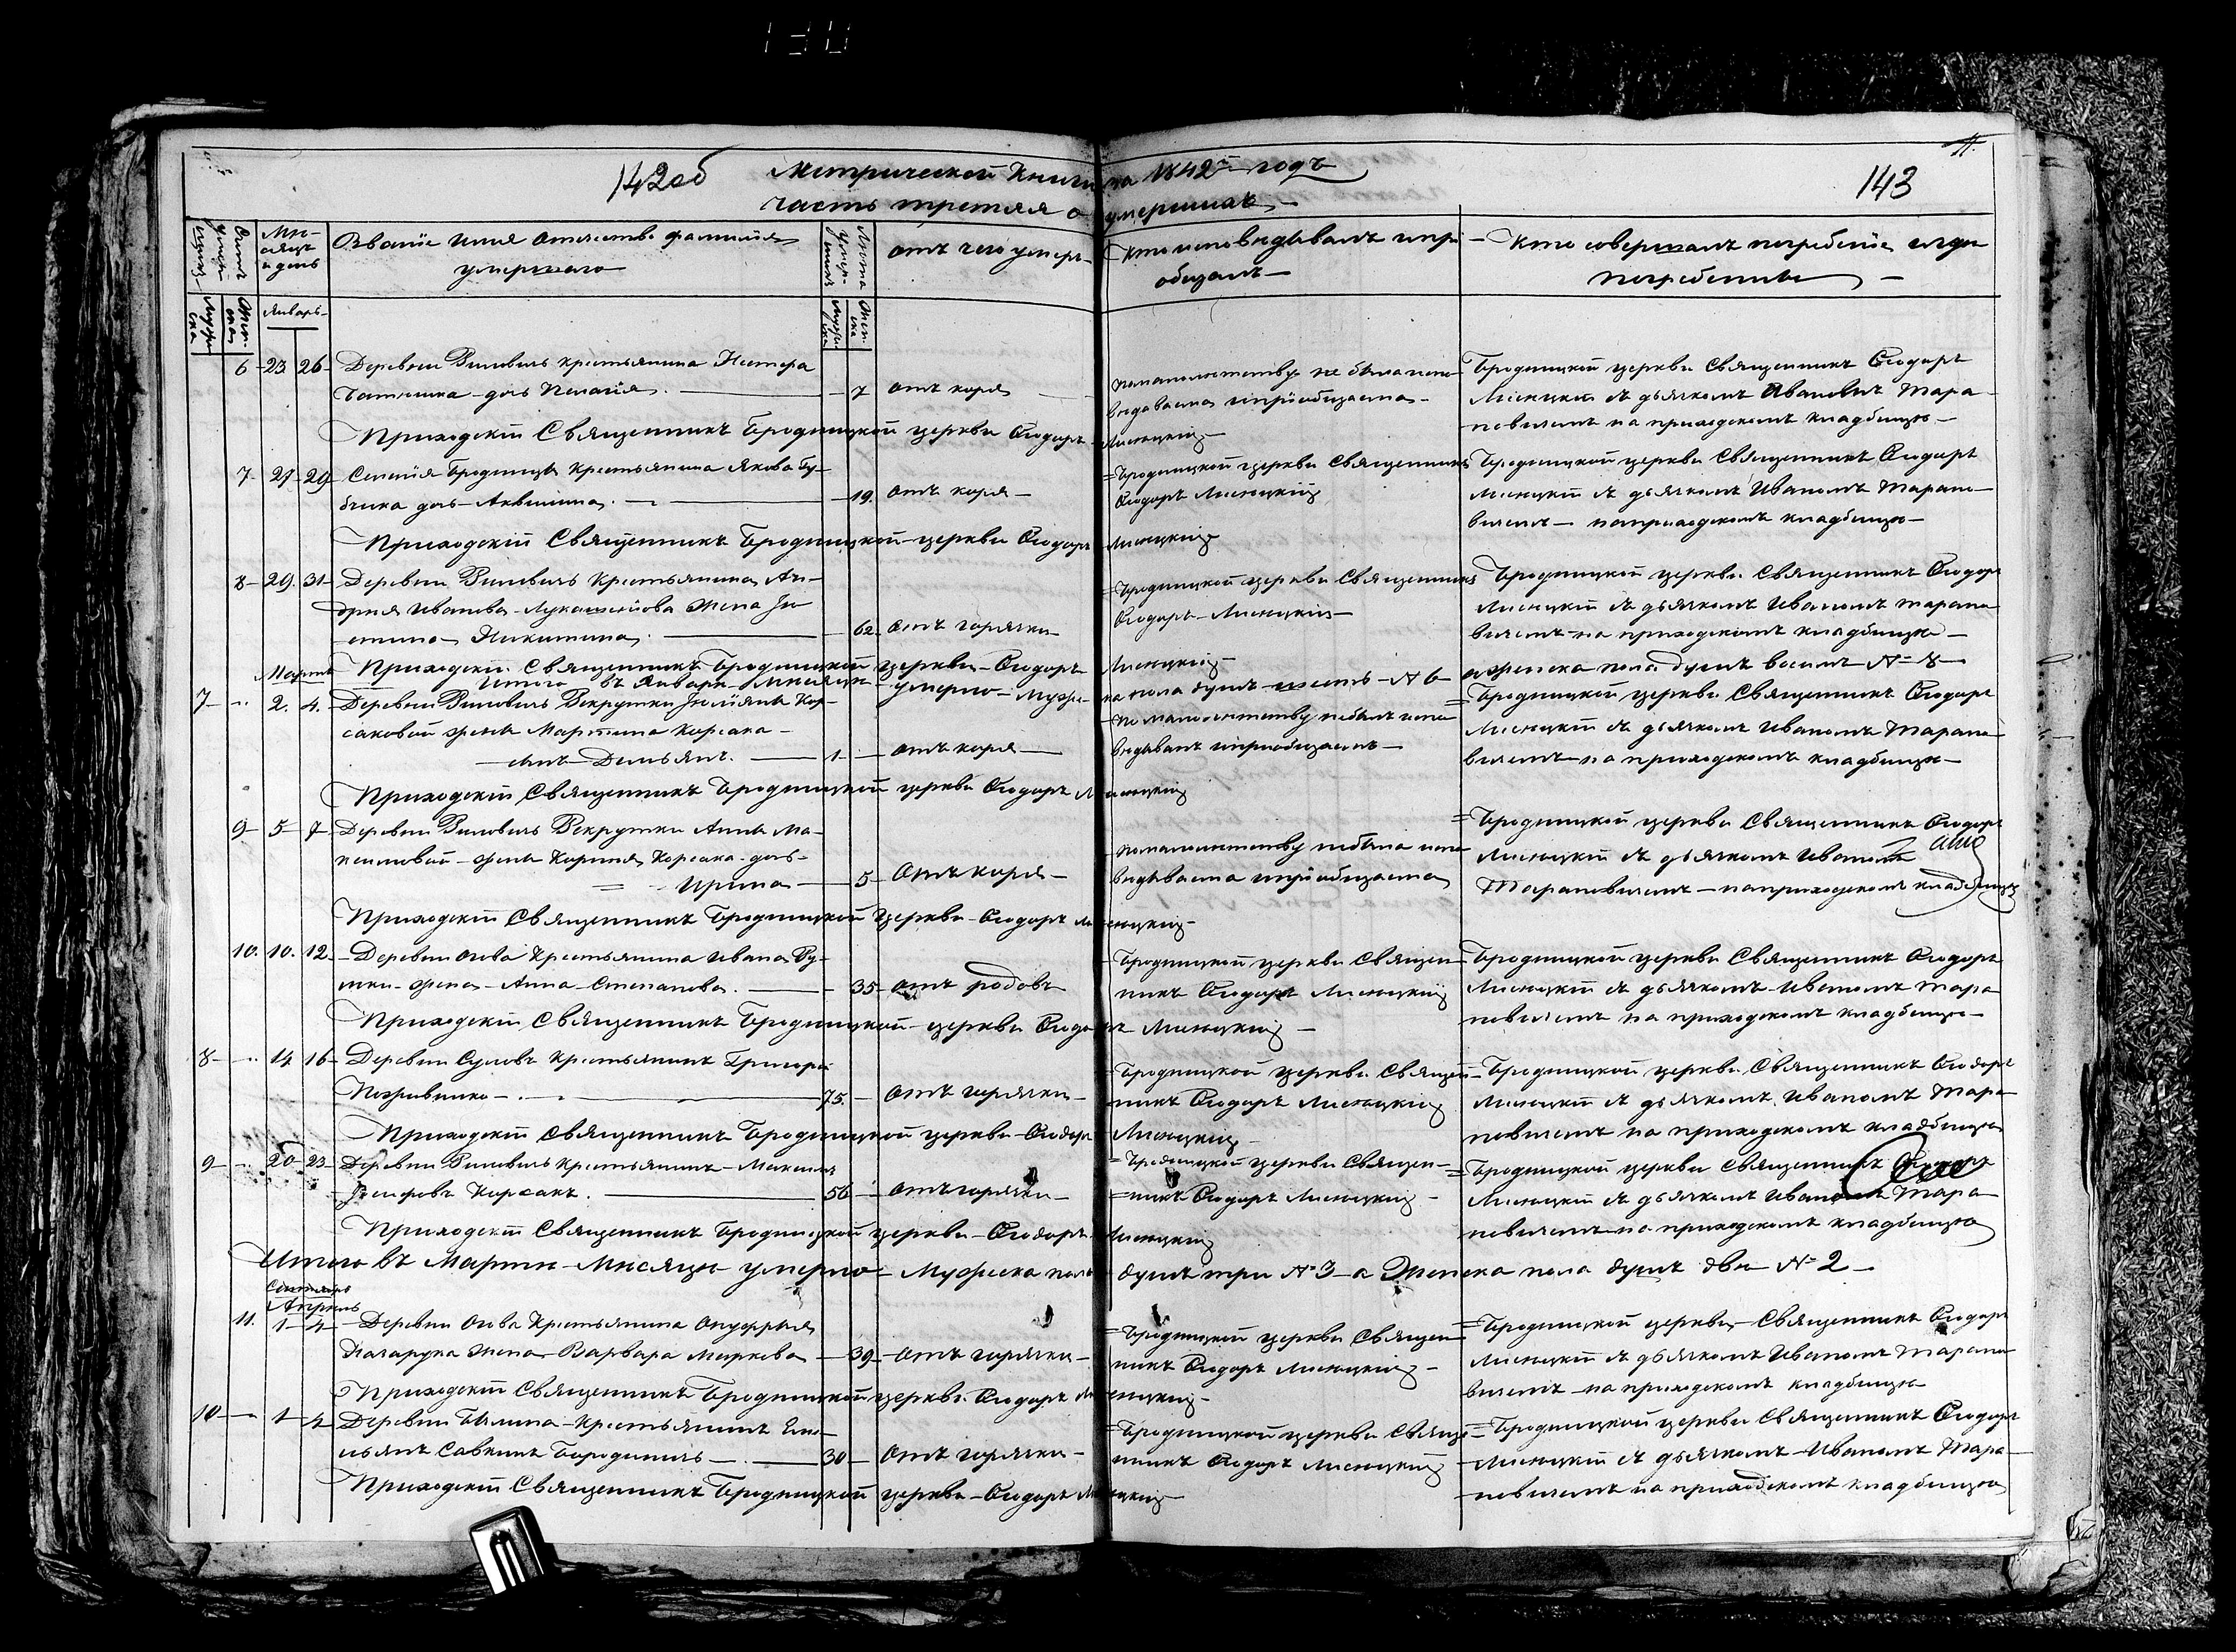 142об
Метрической Книги на 1842й годъ
143
часть третяя о умершихъ
Счетъ умершихъ
Мѣсяцъ и день
Званіе имя отечество фамилія умершаго
Лѣта умершихъ
отъ чего умеръ
Кто исповѣдывалъ и пріобщалъ
Кто совершалъ погребеніе и гдѣ погребенъ
Мужеска
Женска
Январь
Мужеска
Женска
6 23 26 Деревни Виловичь крестьянина Нестора
дочь Пелагія. 7 отъ коря
по малолетству не была испо
вѣдаванна и пріобщаема
Бродницкой церкви Священникъ Ѳеодоръ
Лисецкій съ дьячкомъ Ивановичъ Тара
невичемъ на приходскомъ кладбищѣ
Приходскій Священникъ Бродницкой церкви Ѳеодоръ Лисецкій
7 27 29 Селенія Бродницы Крестьянина Якова Бу
бчика дочь Аквилина. 19. отъ коря
Бродницкой церкви Священникъ
Ѳеодоръ Лисецкій
Бродницкой церкви Священникъ Ѳеодоръ
Лисецкій съ дьячкомъ Иваномъ Таране
вичемъ на приходскомъ кладбищѣ
Приходскій Священникъ Бродницкой церкви Ѳеодоръ Лисецкій
8 29. 31 Деревни Виловичь Крестьянина Ан
дрея Иванова Лукашевова Жена Іу
стина Никитина. 62 отъ горячки
Бродницкой церкви Священникъ
Ѳеодоръ Лисецкій
Бродницкой церкви Священникъ Ѳеодоръ
Лисецкій съ дьячкомъ Иваномъ Тарана
вичемъ на приходскомъ кладбищѣ
Приходскій Священникъ Бродницкой церкви Ѳеодоръ Лисецкій
Итого въ Январѣ Мѣсяцѣ умерло Мужеска пола душъ шесть № 6 а женска пола душъ восемь № 8
Мартъ
7 2. 4. Деревни Виловичь Рекрутки Іуліяны Кор
саковой жены Мартина Корсака
сынъ Демьянъ. 1 отъ коря
по малолетству небылъ испо
вѣдыванъ и пріобщаемъ
Бродницкой церкви Священникъ Ѳеодоръ
Лисецкій съ дьячкомъ Иваномъ Тарана
вичемъ на приходскомъ кладбищѣ
Приходскій Священникъ Бродницкой церкви Ѳеодоръ Лисецкій
9 5 7 Деревни Виловичь Рекрутки Анны Ма
ксимовой жены Корнея Корсака дочь
Ирина 5 Отъ коря
по малолетству небыла испо
вѣдываема и пріобщаема
Бродницкой церкви Священникъ Ѳеодоръ
Лисецкій съ дьячкомъ Иваномъ
Тараневичемъ на приходскомъ кладбищѣ
Приходскій Священникъ Бродницкой церкви Ѳеодоръ Лисецкій
10. 10. 12. Деревни Огова Крестьянина Ивана
жена Анна Степанова. 35 отъ родовъ
Бродницкой церкви Священ
никъ Ѳеодоръ Лисецкій
Бродницкой церкви Священникъ Ѳеодоръ
Лисецкій съ дьячкомъ Иваномъ Тара
невичемъ на приходскомъ кладбищѣ
Приходскій Священникъ Бродницкой церкви Ѳеодоръ Лисецкій
8 14 16 Деревни Суловъ Крестьянинъ Григорій
75. отъ горячки
Бродницкой церкви Священ
никъ Ѳеодоръ Лисецкій
Бродницкой церкви Священникъ Ѳеодоръ
Лисецкій съ дьячкомъ Иваномъ Тара
невичемъ на приходскомъ кладбищѣ
Приходскій Священникъ Бродницкой церкви Ѳеодоръ Лисецкій
9 20 23 Деревни Виловичь Крестьянинъ Максимъ
Іосифовъ Корсакъ. 56 отъ горячки
Бродницкой церкви Священ
никъ Ѳеодоръ Лисецкій
Бродницкой церкви Священникъ Ѳеодоръ
Лисецкій съ дьячкомъ Иваномъ Тара
невичемъ на приходскомъ кладбищѣ
Приходскій Священникъ Бродницкой церкви Ѳеодоръ Лисецкій
Итого въ Мартѣ Мѣсяцѣ умерло Мужеска пола душъ три № 3 а Женска пола душъ двѣ № 2
Апрель
11. 1 4 Деревни Огова Крестьянина Онуфрія
жена Варвара Маркева 39 отъ горячки
Бродницкой церкви Священ
никъ Ѳеодоръ Лисецкій
Бродницкой церкви Священникъ Ѳеодоръ
Лисецкій съ дьячкомъ Иваномъ Тарана
вичемъ на приходскомъ кладбищѣ
Приходскій Священникъ Бродницкой церкви Ѳеодоръ Лисецкій
10 1 4 Деревни Крестьянинъ Еме
льянъ Савкинъ Бородиничь 30 отъ горячки
Бродницкой церкви Священ
никъ Ѳеодоръ Лисецкій
Бродницкой церкви Священникъ Ѳеодоръ
Лисецкій съ дьячкомъ Иваномъ Тара
невичемъ на приходскомъ кладбищѣ
Приходскій Священникъ Бродницкой церкви Ѳеодоръ Лисецкій